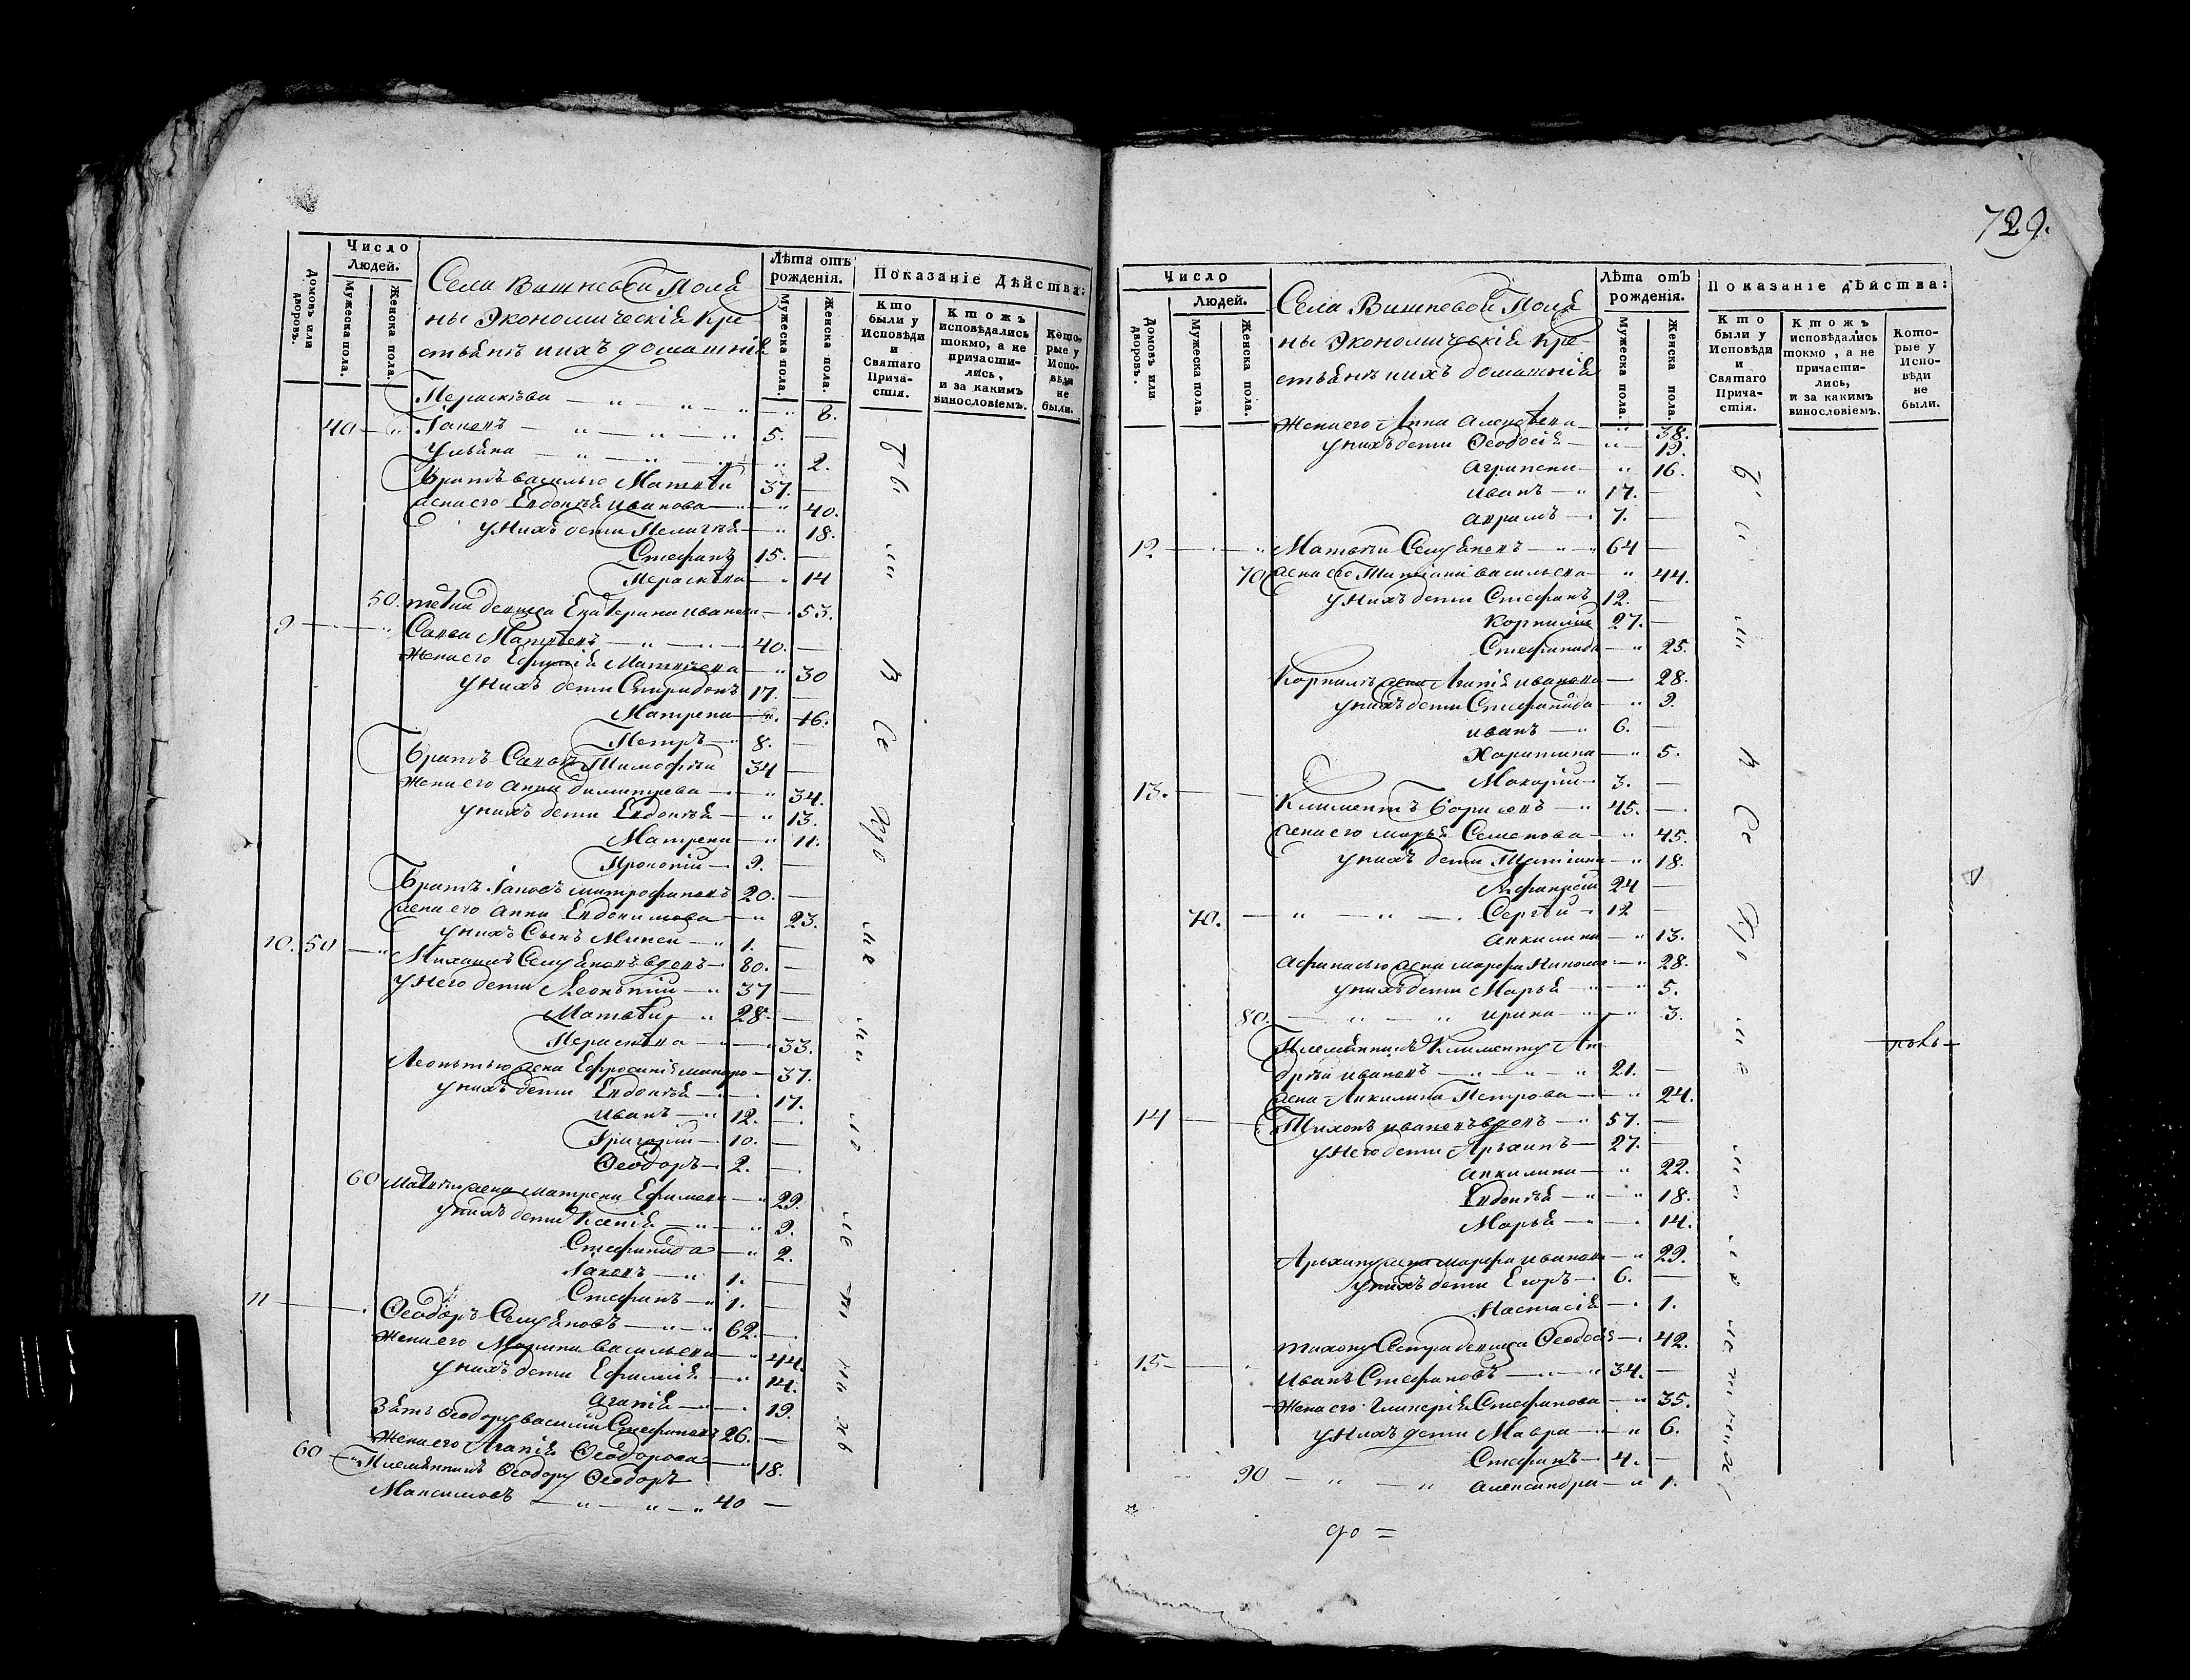 Число
Людей.
Домовъ или дворовъ.
Мужеска пола.
Женска пола.
Села Вишневой Поля
ны Экономическія Кре
стьянѣ ихъ домашнія
Лѣта отъ рожденія.
Мужеска пола.
Женска пола.
Показаніе Дѣйства:
Кто были у Исповѣди и Святаго Прича-стія.
Ктожъ исповѣдались токмо, а не причасти-лись, и за какимъ винословіемъ.
Кото-рые у Испо-вѣди не были.
Параскѣва — " — " — " 8.
40 — " Іаковъ — " — " — " 5. —
Ульяна — " — " — " 2.
Братъ василью Матвѣй 37. —
жена его Евдокѣя иванова — " 40.
у Нихъ дети Пелагѣя — " 18.
Стефанъ 15. —
Параскѣва — " 14
50. девица Екатерина иванова — 53.
9 — — " Савва Матвѣевъ — " — " — 40. —
Жена его Ефимія Матвѣева — " 30
у Нихъ дети Спиридонъ 17. —
Матрена — " 16.
Петръ — " 8. —
Братъ Саввѣ Тимофѣй 34 —
Жена его анна димитрева — " 34.
у нихъ дети Евдокѣя — " 13.
Матрена — " 11.
Прокопій — 9. —
Братъ Іаковъ митрофановъ 20. —
жена его анна Евдокимова — " 23.
у нихъ Сынъ Минеи — " 1. —
10. 50 — " Михаилъ Семеновъ вдовъ — 80. —
у Него дети Леонътии — " 37 —
Матвѣи — " 28. —
Параскѣва — " 33.
Леонътью жена Ефросинія — 37.
у нихъ дети Евдокѣя — 17.
иванъ — " 12. —
Григорій — 10. —
Ѳеодоръ — 2. —
60 Матвѣю жена матрена Ефимова — " 29.
у нихъ дети Ксенія — " — " 9.
Стефанида — " 2.
Іаковъ — " 1. —
Стефанъ — " 1. —
11 — — Ѳеодоръ Семеновъ — " — " 62. —
Жена его Марина васильева — " 44.
у нихъ дети Ефимія — " 14.
Агапія — " — 19.
Зять Ѳеодору василий Стефановъ 26. —
Жена его Агапія Ѳеодорова — " 18.
60 — " Племянникъ Ѳеодору Ѳеодоръ
Максимовъ — " — " — " 40 —
729.
Число
Людей.
Домовъ или дворовъ.
Мужеска пола.
Женска пола.
Села Вишневой Поля
ны Экономическія Кре-
стьянѣ ихъ домашнія
Лѣта отъ рожденія.
Мужеска пола.
Женска пола.
Показаніе дѣйства:
Кто были у Исповѣди и Святаго Прича-стія.
Ктожъ исповѣдались токмо, а не причасти-лись, и за какимъ винословіемъ.
Кото-рые у Испо-вѣди не были.
Жена его Анна — " 38.
у нихъ дети Ѳеодосія — " 19.
агрипена — " 16.
иванъ — " 17. —
аврамъ — 7. —
12 — — " Матвѣи Семеновъ — " — " 64 —
70 жена его Татіана васильева — " 44.
у Нихъ дети Стефанъ 12. —
Корнилий 27. —
Стефанида — " 25.
Корнилъ жена Агапія иванова — 28.
у нихъ дети Стефанида — " 9.
иванъ — " 6. —
Харитина — " 5.
Макарій — 3. —
13. — — Климентъ Борисовъ — " 45. —
жена его марья Семенова — " 45.
у нихъ дети Татіана — " 18.
Афанасій 24 —
70. — " — " — Сергѣй — 12 —
акилина — " 13.
афанасью жена марфа — " 28.
у нихъ дети Марья — " — " 5.
80. — " — " ирина — " — " 3.
Племянникъ Клименту Ан-
дрѣй ивановъ — " — " — " 21. —
жена Акилина Петрова — " 24.
14 — — Тихонъ ивановъ вдовъ — " 57. —
у Него дети Архипъ — 27. —
акилина — " 22.
Евдокѣя — " — " 18.
Марья — " — " 14.
Архипу жена марфа иванова — " 29.
у нихъ дети Егоръ — 6. —
Настасія — 1.
тихону Сестра девица Ѳеодосія — 42.
15 — — Иванъ Стефановъ — " — " 34. —
Жена его Гликерія Стефанова — " 35.
у Нихъ дети Мавра — " 6.
Стефанъ — 4. —
90 — " — " александра — " 1.
90 =